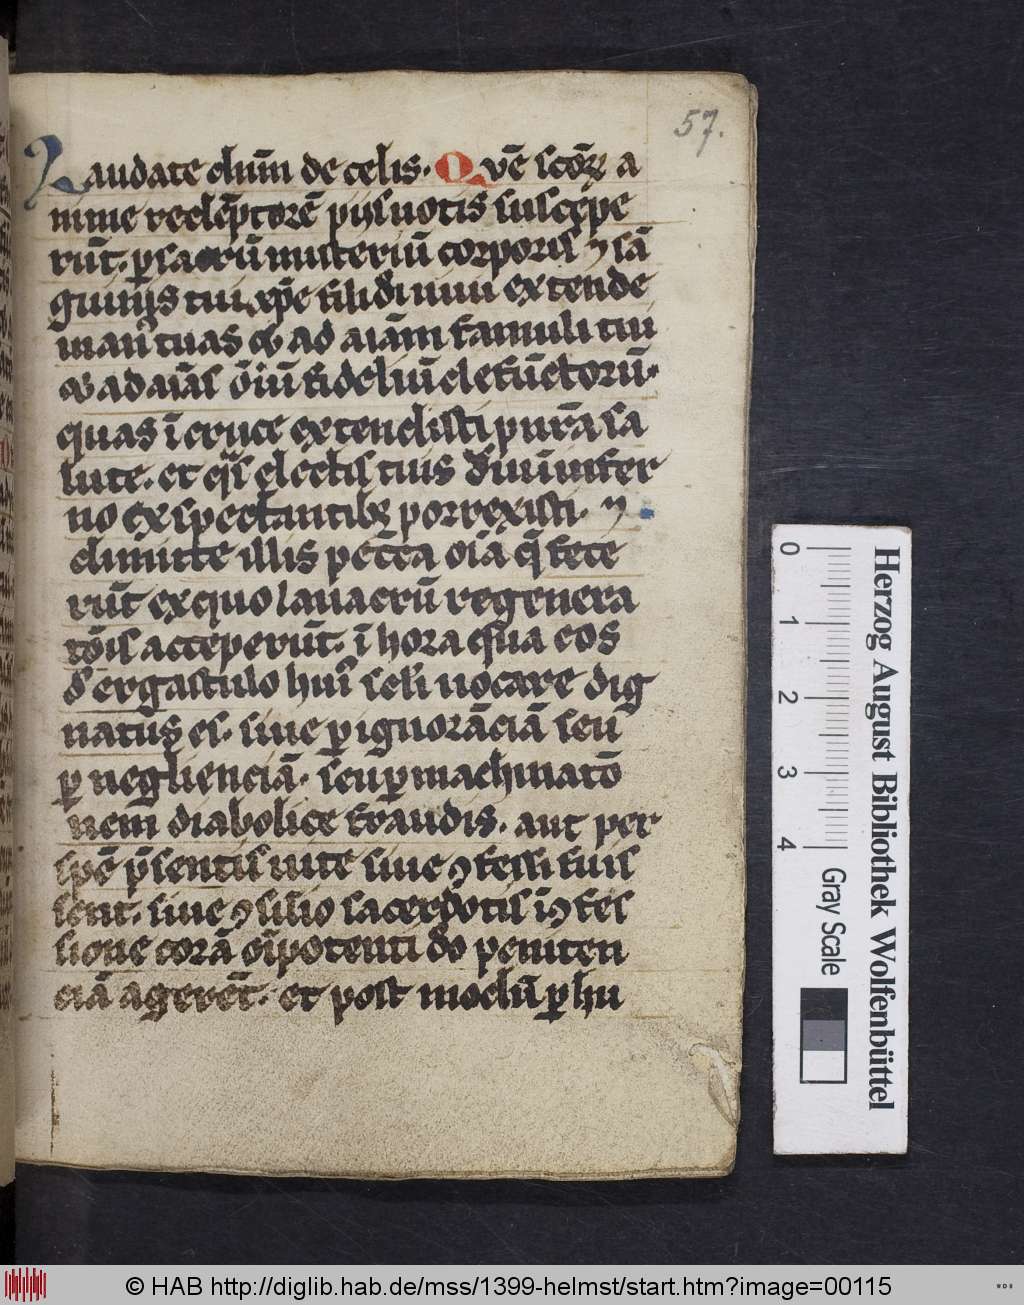 57.
Laudate dnm̄ de celis. Qvē sctōꝝ a
nime redēptorē pijs uotis suscepe
rūt. ꝑ sacrū misteriū corporis ⁊ sā
guinis tui xp̄e fili di uiui extende
manꝰ tuas ad aīam famuli tui
ad aīas oīu fideliū defūctorū.
quas ī cruce extendisti pur̄a sa
lute. et qͥs electis tuis inifer
no exspectantibꝫ porrexisti. ⁊
dimitte illis pec̄ca oīa q̄ fece
rūt ex quo lauacrū regenera
tōis acceperūt. ī hora qua eos
d̄ ergastulo huiꝰ seli uocare dig
natus es. siue ꝑ ignorāciā seu
ꝑ negliencā. seu ꝑ machinatō
nem diabolice fraudis. aut per
spē p̄sentis uite siue ꝯfessi fuis
sent. siue ꝯsilio sacerdotis ī ꝯfes
sione corā oīpotenti dō peniten
ciā agerēt. et post modū ꝑ hu
0 1 2 3 4
Gray Scale
Herzog August Bibliothek Wolfenbüttel
© HAB http://diglib.hab.de/mss/1399-helmst/start.htm?image=00115